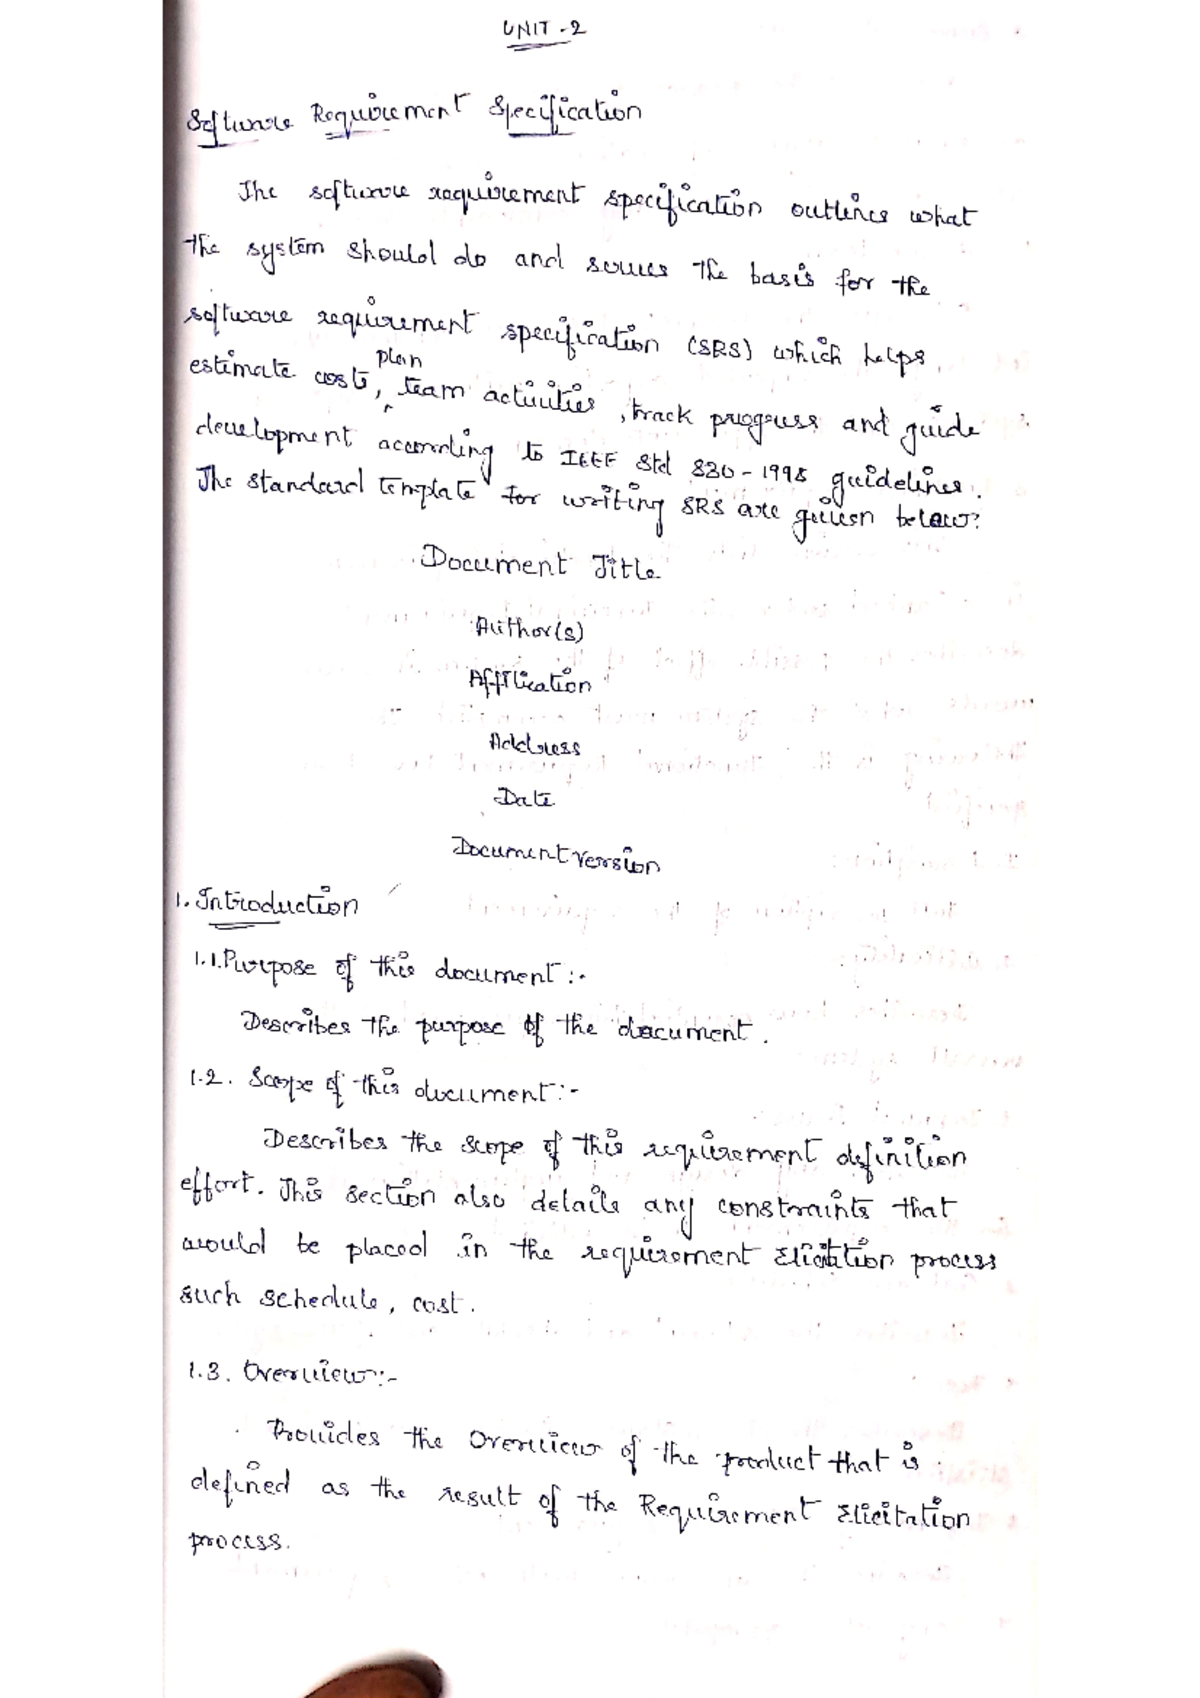 UNIT - 2
Software Requirement Specification
The software requirement specification outlines what
the system should do and serves the basis for the
software requirement specification (SRS) which helps
estimate costs, plan team activities, track progress and guide
development according to IEEE Std 830-1998 guidelines.
The standard template for writing SRS are given below:
Document Title
Author(s)
Affilication
Address
Date
Document Version
1. Introduction
1.1. Purpose of this document :-
Describes the purpose of the document.
1.2. Scope of this document :-
Describes the scope of this requirement definition
effort. This section also details any constraints that
would be placed in the requirement Elicitation process
such schedule, cost.
1.3. Overview :-
Provides the Overview of the product that is
defined as the result of the Requirement Elicitation
process.